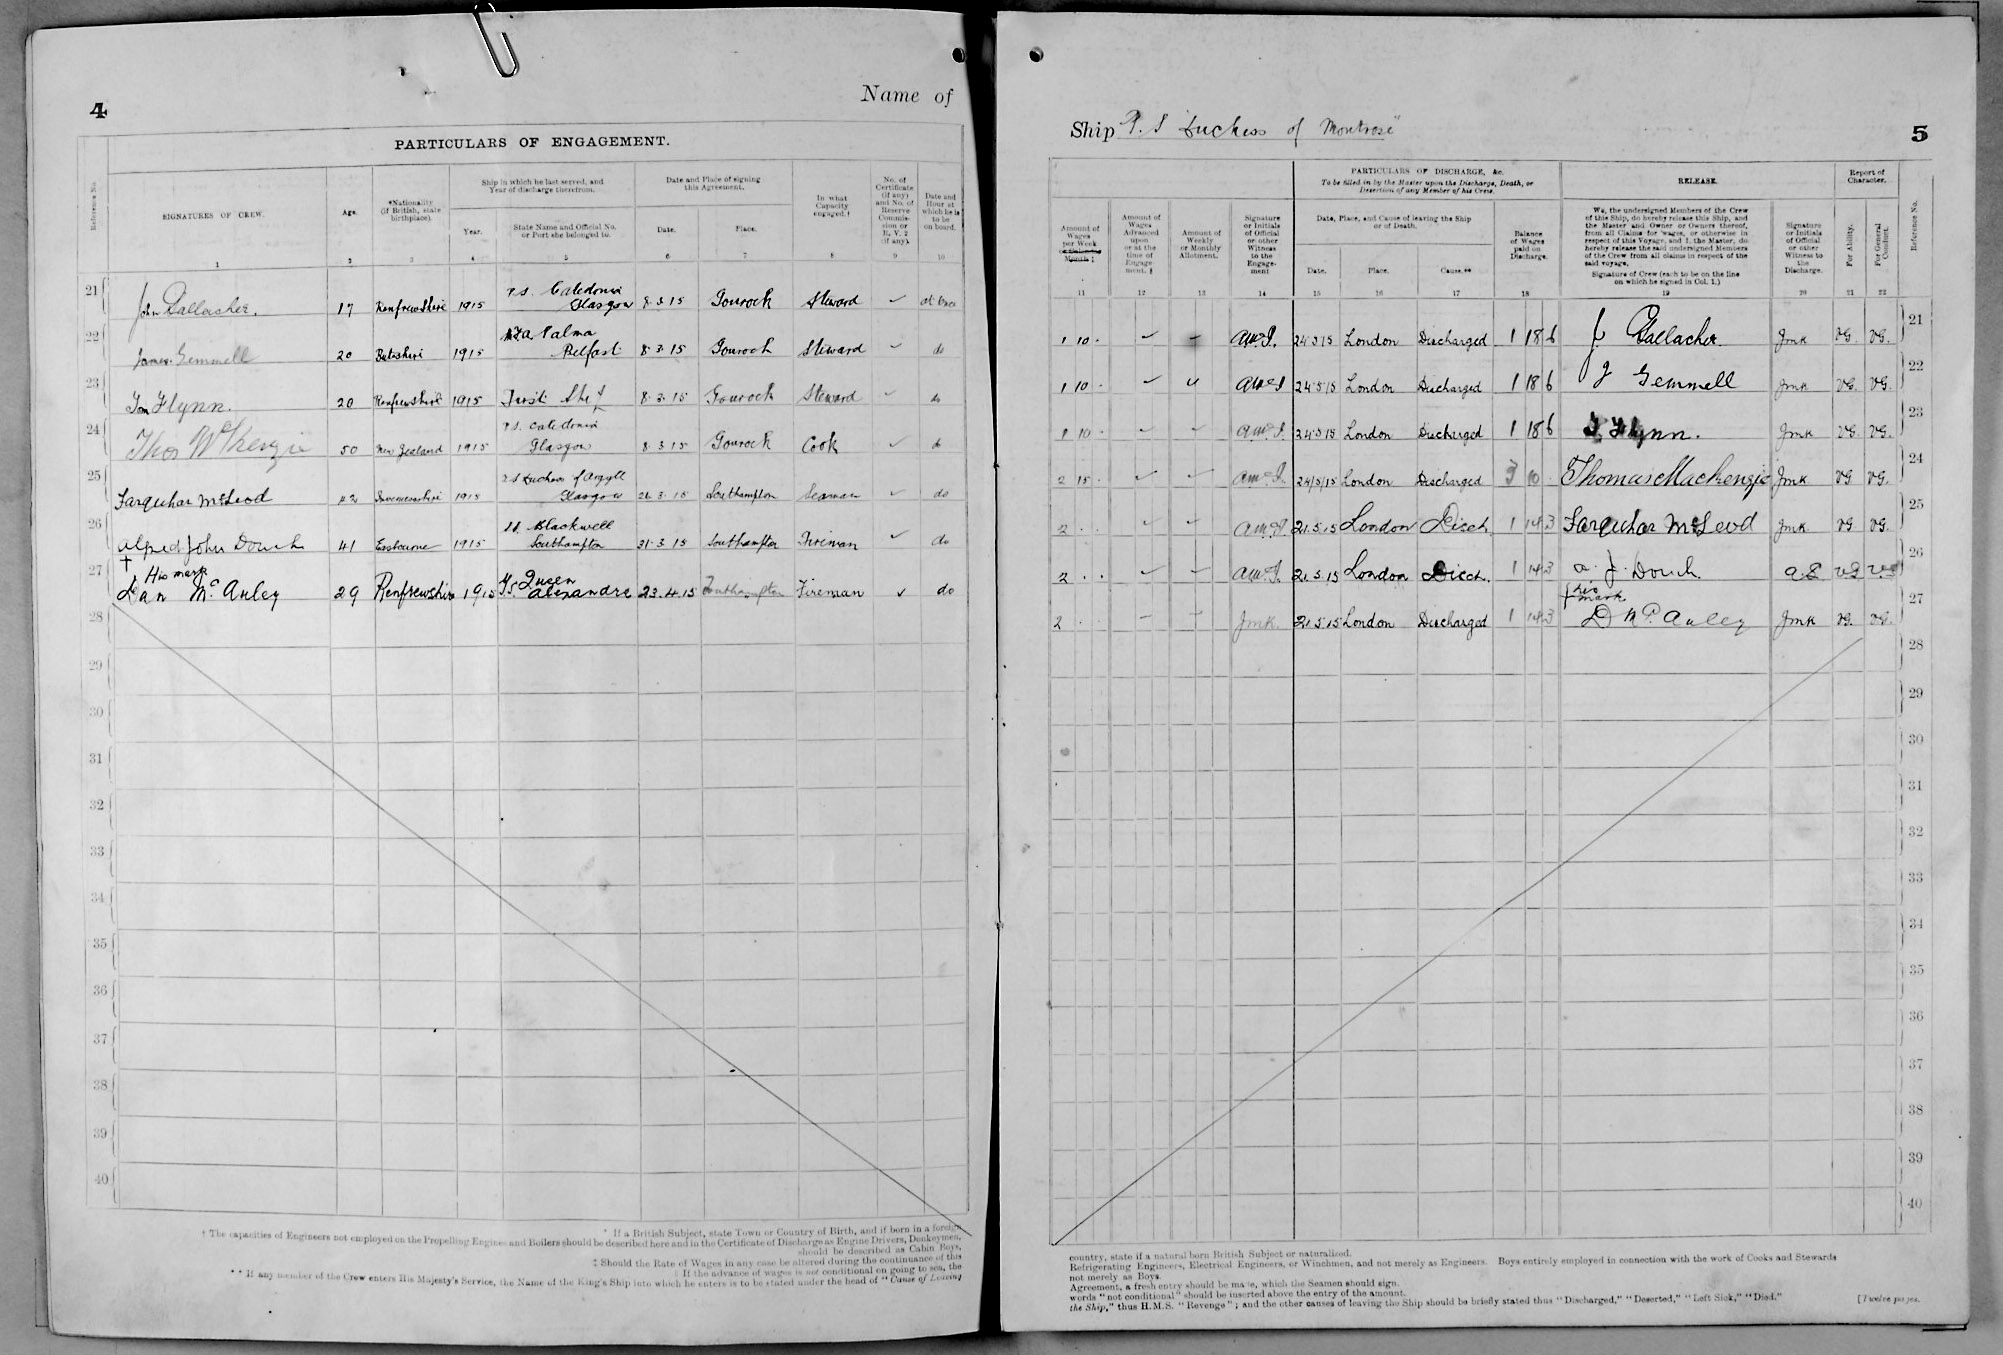 4
Name of
PARTICULARS OF ENGAGEMENT.
Reference No.
SIGNATURES OF CREW.
Age.
*Nationality (If British, state birthplace).
Ship in which he last served, and Year of discharge therefrom.
Year.
State Name and Official No. or Port she belonged to.
Date and Place of signing this Agreement.
Date.
Place.
In what Capacity engaged.†
No. of Certificate (if any) and No. of Reserve Commission or R. V. 2 (if any).
Date and Hour at which he is to be on board.
1 2 3 4 5 6 7 8 9 10
21 John Gallacher. 17 Renfrewshire 1915 P.S. Caledonia Glasgow 8.3.15 Gourock Steward at once
22 James Gemmell 20 Buteshire 1915 Palma Belfast 8.3.15 Gourock Steward do
23 Tom Flynn. 20 Renfrewshire 1915 First Ship 8.3.15 Gourock Steward do
24 Thos McKenzie 50 New Zealand 1915 P.S. Caledonia Glasgow 8.3.15 Gourock Cook do
25 Farquhar McLeod 42 Invernesshire 1915 Duchess of Argyll Glasgow 26.3.15 Southampton Seaman do
26 Alfred John Douch 41 Eastbourne 1915 Blackwell Southampton 31.3.15 Southampton Fireman do
27 † His mark Dan McAuley 29 Renfrewshire 1915 Queen Alexandra 23.4.15 Southampton Fireman do
28
29
30
31
32
33
34
35
36
37
38
39
40
* If a British Subject, state Town or Country of Birth, and if born in a foreign
† The capacities of Engineers not employed on the Propelling Engines and Boilers should be described here and in the Certificate of Discharge as Engine Drivers, Donkeymen,
should be described as Cabin Boys,
‡ Should the Rate of Wages in any case be altered during the continuance of this
§ If the advance of wages is not conditional on going to sea, the
** If any member of the Crew enters His Majesty's Service, the Name of the King's Ship into which he enters is to be stated under the head of "Cause of Leaving
Ship P.S Duchess of Montrose"
5
PARTICULARS OF DISCHARGE, &c.
To be filled in by the Master upon the Discharge, Death, or Desertion of any Member of his Crew.
RELEASE.
Report of Character.
Amount of Wages per Week or Calendar Month ‡
Amount of Wages Advanced upon or at the time of Engagement. §
Amount of Weekly or Monthly Allotment.
Signature or Initials of Official or other Witness to the Engagement
Date, Place, and Cause of leaving the Ship or of Death.
Date.
Place.
Cause.**
Balance of Wages paid on Discharge.
We, the undersigned Members of the Crew
of this Ship, do hereby release this Ship, and
the Master and Owner or Owners thereof,
from all Claims for wages, or otherwise in
respect of this Voyage, and I, the Master, do
hereby release the said undersigned Members
of the Crew from all claims in respect of the
said voyage.
Signature of Crew (each to be on the line
on which he signed in Col. 1.)
Signature or Initials of Official or other Witness to the Discharge.
For Ability.
For General Conduct.
Reference No.
11 12 13 14 15 16 17 18 19 20 21 22
1 10 24.5.15 London Discharged 1 18 6 J Gallacher JMK VG. VG. 21
1 10 24.5.15 London Discharged 1 18 6 J Gemmell JMK VG. VG. 22
1 10 24.5.15 London Discharged 1 18 6 T Flynn. JMK VG. VG. 23
2 15 24/5/15 London Discharged 3 10 Thomas Mackenzie JMK VG VG. 24
2 21.5.15 London Disch 1 14 3 Farquhar McLeod JMK VG VG. 25
2 21.5.15 London Disch. 1 14 3 A. J. Douch VG VG 26
2 JMK 21.5.15 London Discharged 1 14 3 † his mark D McAuley JMK VG. VG. 27
28
29
30
31
32
33
34
35
36
37
38
39
40
country, state if a natural born British Subject or naturalized.
Refrigerating Engineers, Electrical Engineers, or Winchmen, and not merely as Engineers. Boys entirely employed in connection with the work of Cooks and Stewards
not merely as Boys.
Agreement, a fresh entry should be made, which the Seamen should sign.
words "not conditional" should be inserted above the entry of the amount.
the Ship," thus H.M.S. "Revenge"; and the other causes of leaving the Ship should be briefly stated thus "Discharged," "Deserted," "Left Sick," "Died."
[Twelve pages.